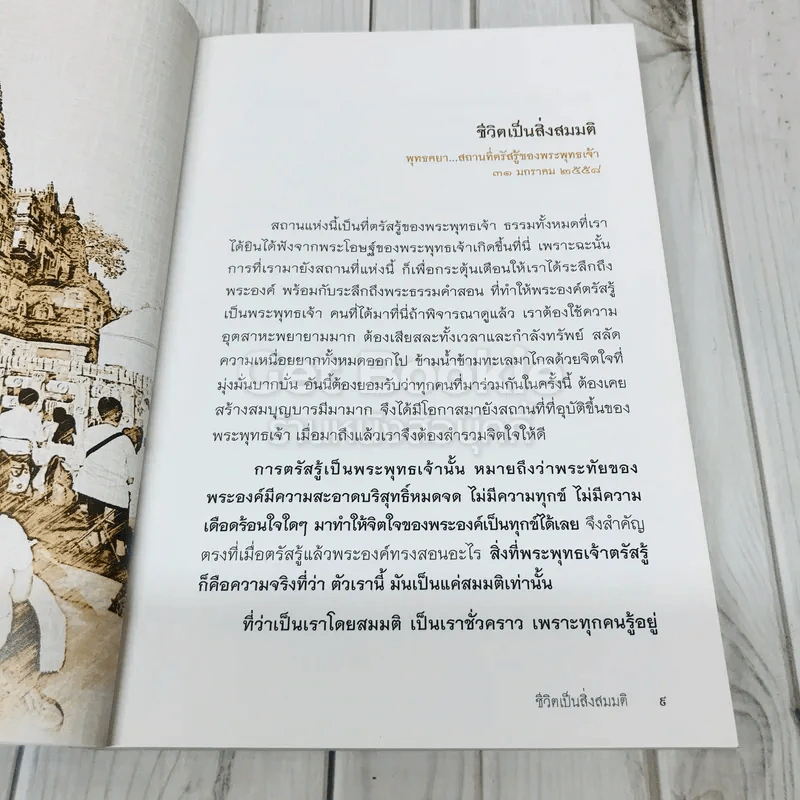 ชีวิตเป็นสิ่งสมมติ
พุทธคยา...สถานที่ตรัสรู้ของพระพุทธเจ้า
๓๑ มกราคม ๒๕๕๘
สถานแห่งนี้เป็นที่ตรัสรู้ของพระพุทธเจ้า ธรรมทั้งหมดที่เรา
ได้ยินได้ฟังจากพระโอษฐ์ของพระพุทธเจ้าเกิดขึ้นที่นี่ เพราะฉะนั้น
การที่เรามายังสถานที่แห่งนี้ ก็เพื่อกระตุ้นเตือนให้เราได้ระลึกถึง
พระองค์ พร้อมกับระลึกถึงพระธรรมคำสอน ที่ทำให้พระองค์ตรัสรู้
เป็นพระพุทธเจ้า คนที่ได้มาที่นี่ถ้าพิจารณาดูแล้ว เราต้องใช้ความ
อุตสาหะพยายามมาก ต้องเสียสละทั้งเวลาและกำลังทรัพย์ สลัด
ความเหนื่อยยากทั้งหมดออกไป ข้ามน้ำข้ามทะเลมาไกลด้วยจิตใจที่
มุ่งมั่นบากบั่น อันนี้ต้องยอมรับว่าทุกคนที่มาร่วมกันในครั้งนี้ ต้องเคย
สร้างสมบุญบารมีมามาก จึงได้มีโอกาสมายังสถานที่ที่อุบัติขึ้นของ
พระพุทธเจ้า เมื่อมาถึงแล้วเราจึงต้องสำรวมจิตใจให้ดี
การตรัสรู้เป็นพระพุทธเจ้านั้น หมายถึงว่าพระทัยของ
พระองค์มีความสะอาดบริสุทธิ์หมดจด ไม่มีความทุกข์ ไม่มีความ
เดือดร้อนใจใดๆ มาทำให้จิตใจของพระองค์เป็นทุกข์ได้เลย จึงสำคัญ
ตรงที่เมื่อตรัสรู้แล้วพระองค์ทรงสอนอะไร สิ่งที่พระพุทธเจ้าตรัสรู้
ก็คือความจริงที่ว่า ตัวเรานี้ มันเป็นแค่สมมติเท่านั้น
ที่ว่าเป็นเราโดยสมมติ เป็นเราชั่วคราว เพราะทุกคนรู้อยู่
ชีวิตเป็นสิ่งสมมติ ๙